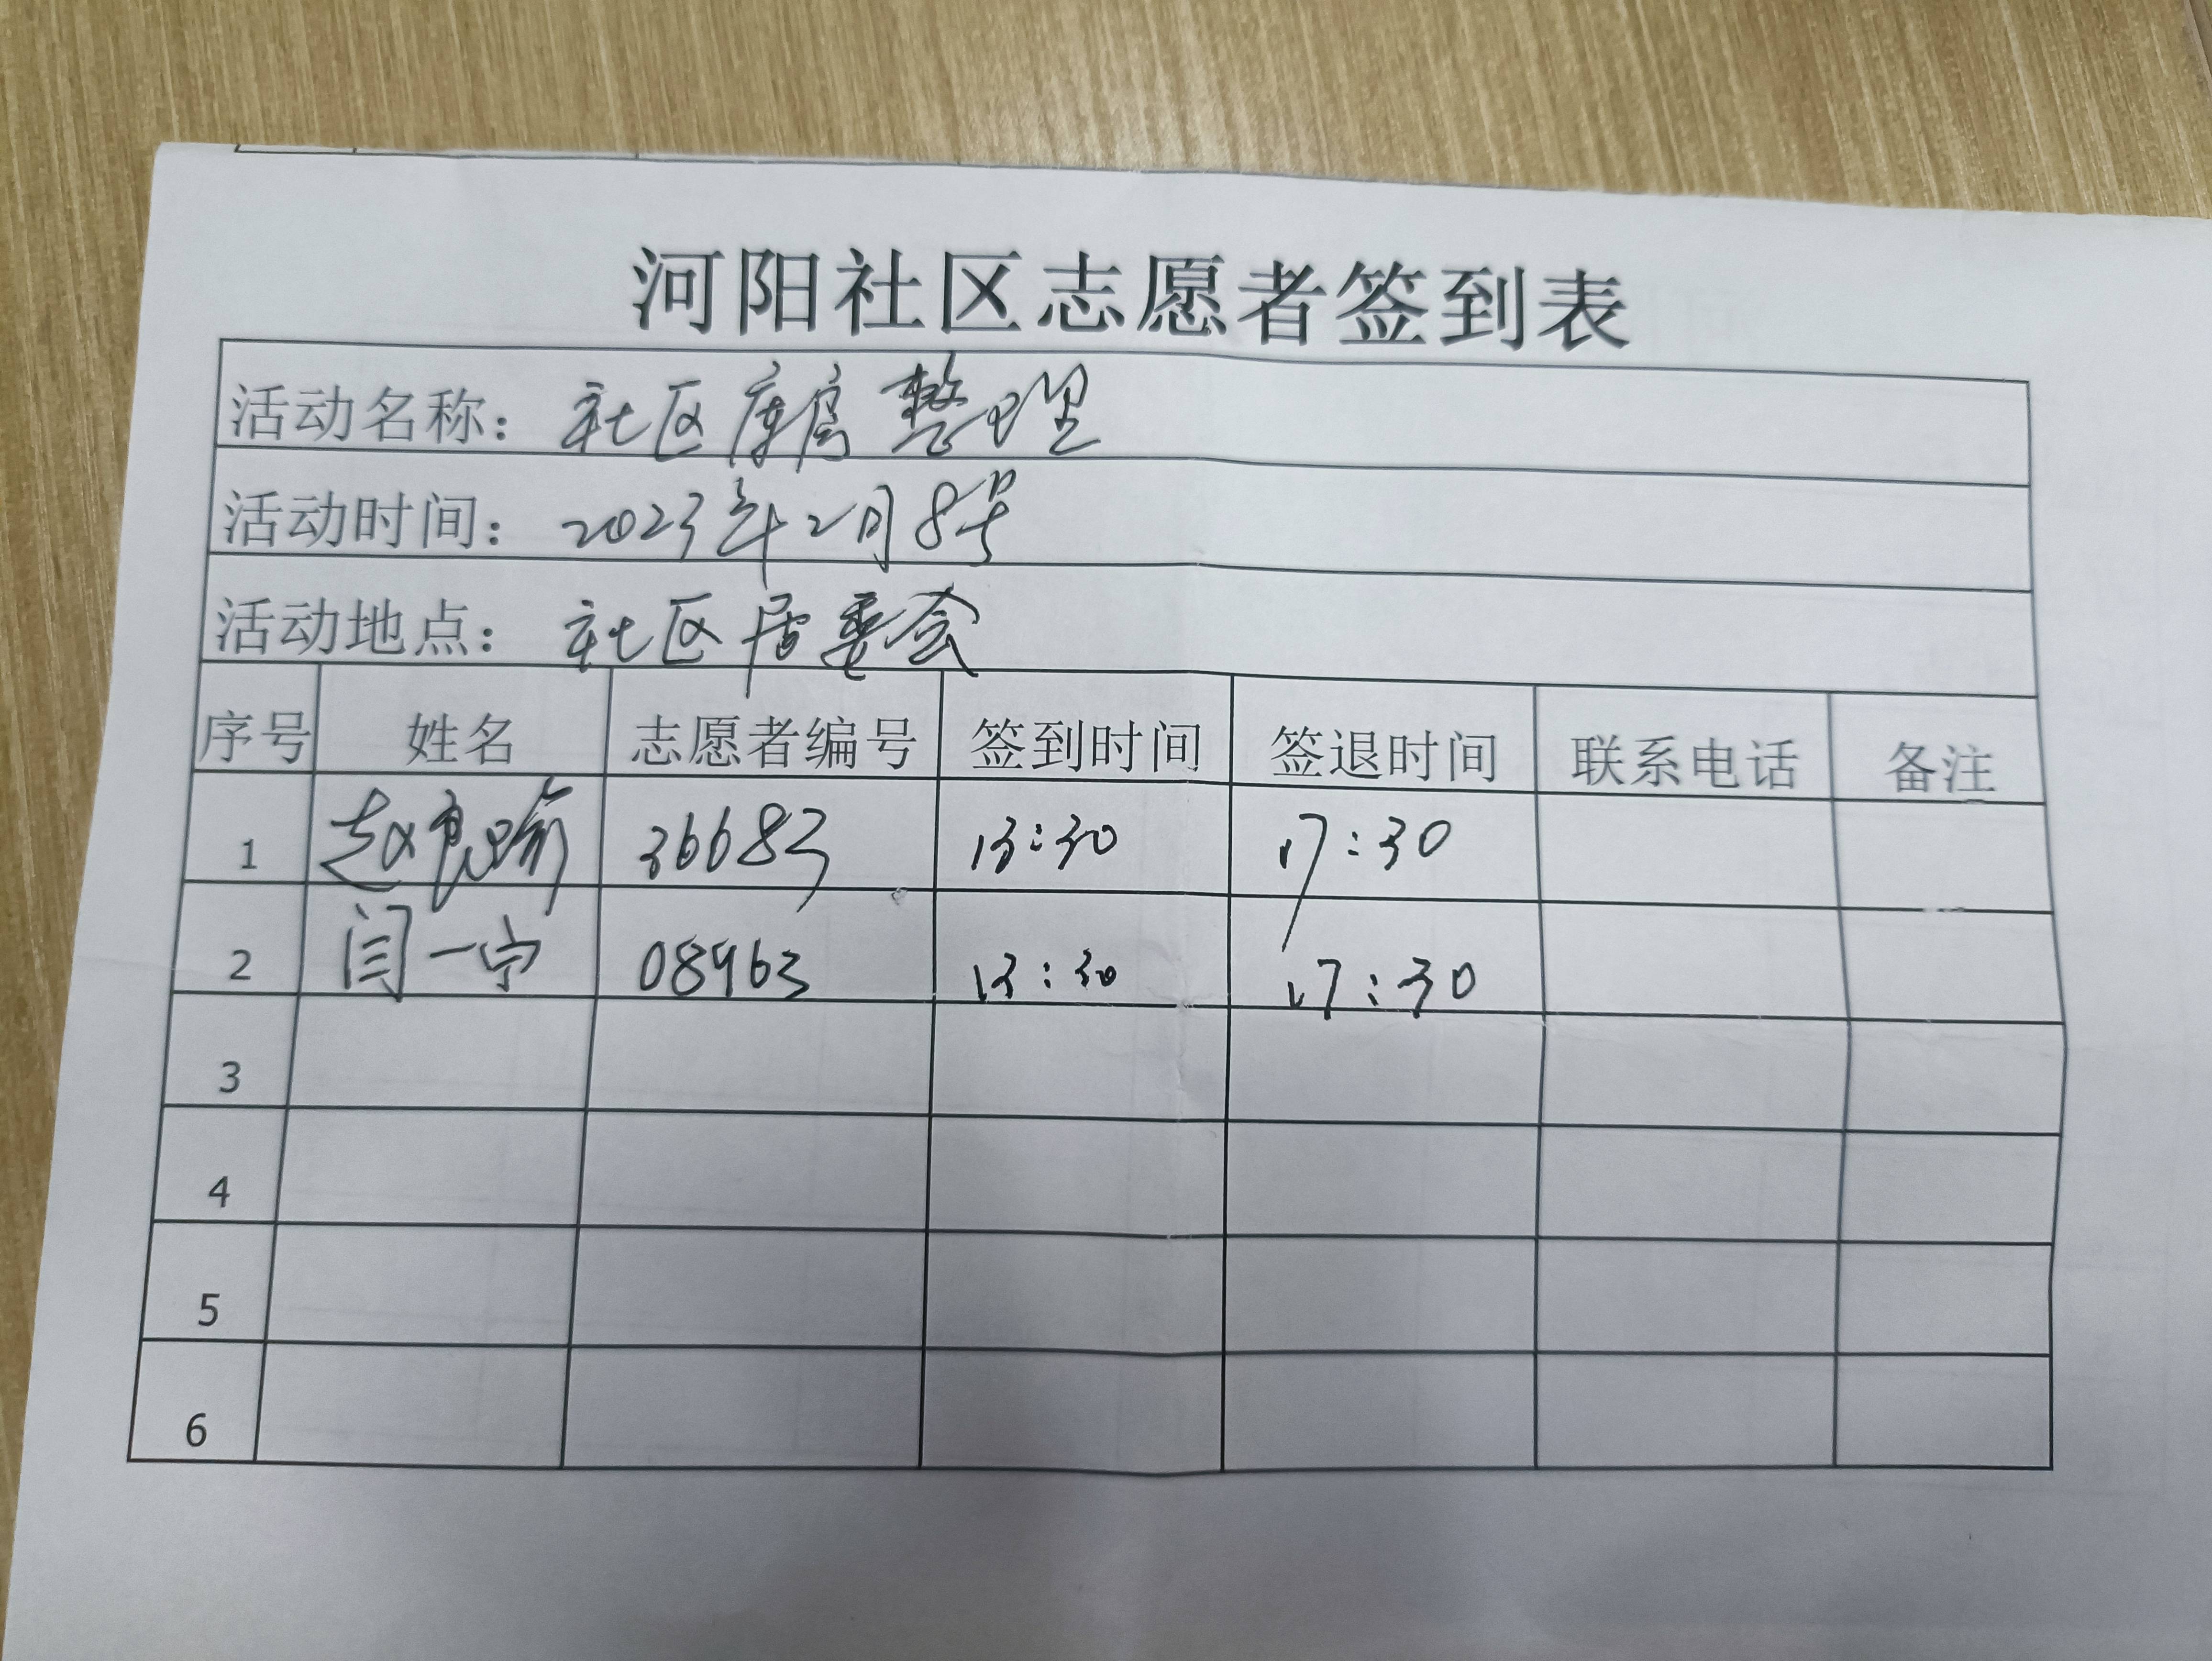 河阳社区志愿者签到表
活动名称：社区库房整理
活动时间：2023年2月8号
活动地点：社区居委会
序号 姓名 志愿者编号 签到时间 签退时间 联系电话 备注
1 赵良瑜 36683 13:30 17:30
2 闫一宁 08963 13:30 17:30
3
4
5
6